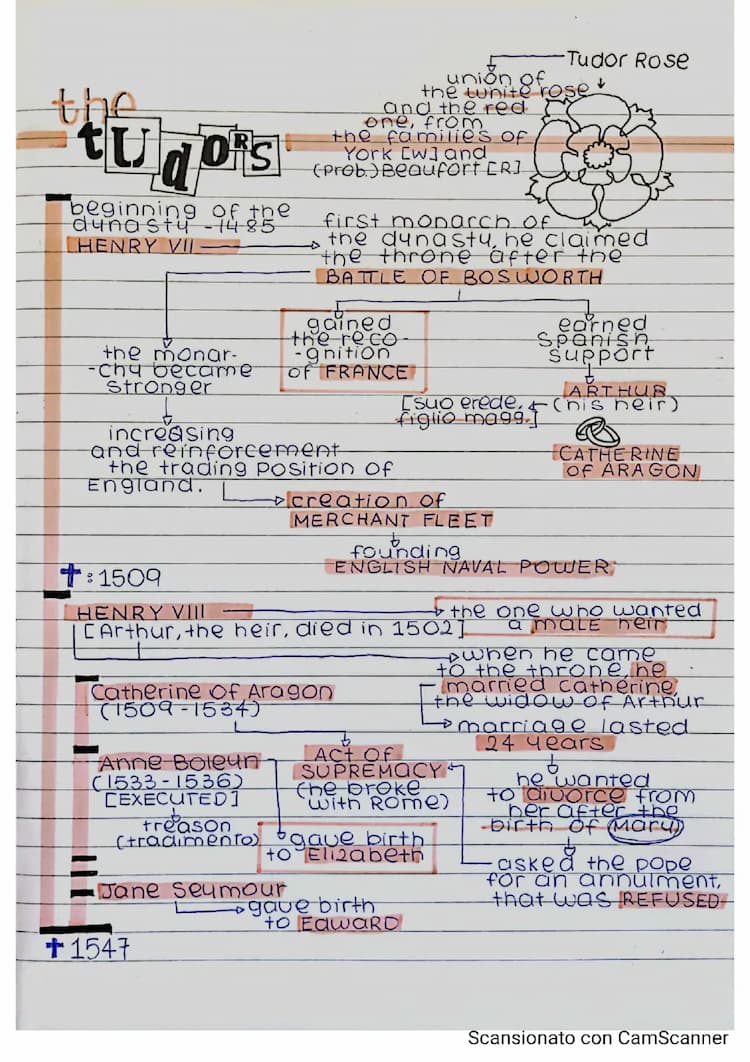 the
tUdoRS
Tudor Rose
union of
the white rose
and the red
one, from
the families of
York [W] and
(prob.) Beaufort [R]
beginning of the
dynasty - 1485
HENRY VII
first monarch of
the dynasty, he claimed
the throne after the
BATTLE OF BOSWORTH
the monar-
-chy became
stronger
gained
the reco-
-gnition
of FRANCE
earned
Spanish
support
ARTHUR
(his heir)
[suo erede,
figlio magg.]
CATHERINE
OF ARAGON
increasing
and reinforcement
the trading position of
England.
creation of
MERCHANT FLEET
founding
ENGLISH NAVAL POWER
✝: 1509
HENRY VIII
[Arthur, the heir, died in 1502]
the one who wanted
a MALE heir
when he came
to the throne, he
married Catherine,
the widow of Arthur
marriage lasted
24 years
Catherine of Aragon
(1509-1534)
Anne Boleyn
(1533-1536)
[EXECUTED]
treason
(tradimento)
ACT OF
SUPREMACY
(he broke
with Rome)
gave birth
to Elizabeth
he wanted
to divorce from
her after the
birth of Mary
asked the pope
for an annulment,
that was REFUSED
Jane Seymour
gave birth
to EDWARD
✝ 1547
Scansionato con CamScanner